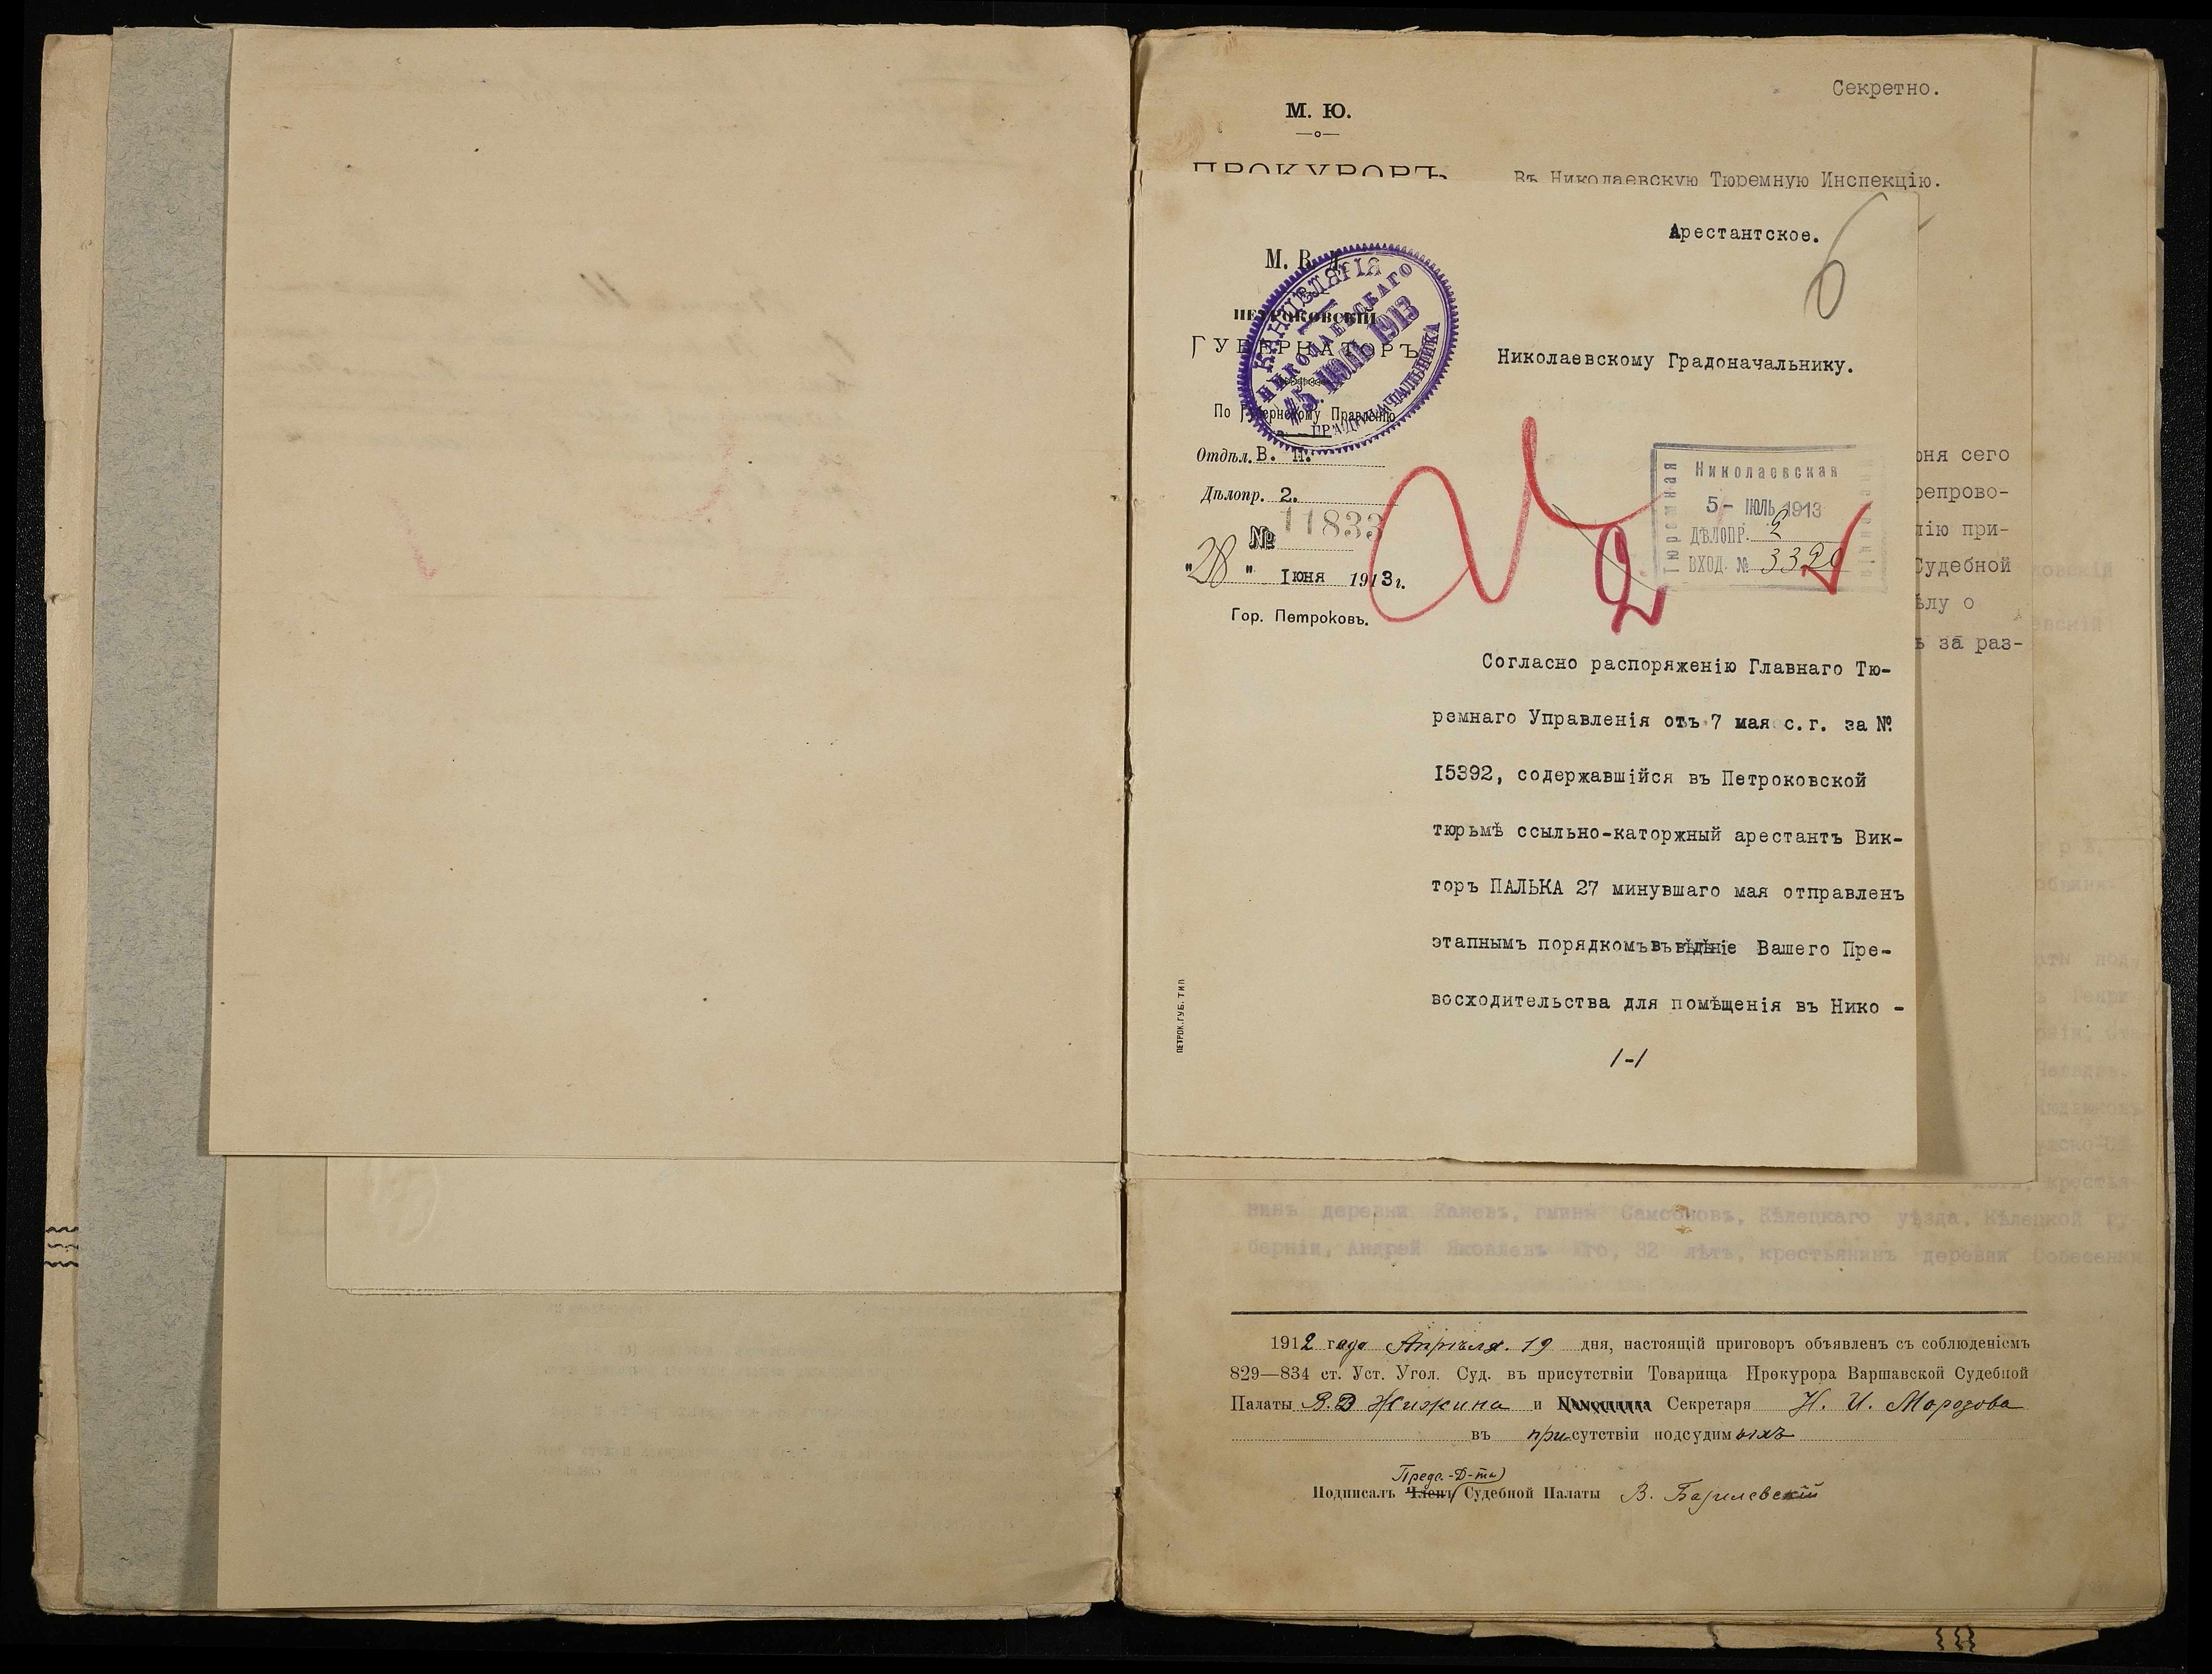 Секретно.
М. Ю.
ПРОКУРОРЪ
Въ Николаевскую Тюремную Инспекцію.
Арестантское.
6
М. В. Д.
ПЕТРОКОВСКІЙ
ГУБЕРНАТОРЪ
КАНЦЕЛЯРІЯ
НИКОЛАЕВСКАГО
5 ІЮЛЬ 1913
ГРАДОНАЧАЛЬНИКА
Николаевскому Градоначальнику.
По Губернскому Правленію
Отдѣл. В. Т.
Дѣлопр. 2.
№ 11833
"28" Іюня 1913 г.
Гор. Петроковъ.
Николаевская
Тюремная
5- ІЮЛЬ 1913
ДѢЛОПР. 2
ВХОД. № 3320
юня сего
репрово-
нію при-
Судебной
ѣлу о
ъ за раз-
Согласно распоряженію Главнаго Тю-
ремнаго Управленія отъ 7 мая с.г. за №
15392, содержавшійся въ Петроковской
тюрьмѣ ссыльно-каторжный арестантъ Вик-
торъ ПАЛЬКА 27 минувшаго мая отправленъ
этапнымъ порядкомъ въ вѣдѣніе Вашего Пре-
восходительства для помѣщенія въ Нико -
1-1
ПЕТРОК. ГУБ. ТИП
крестья-
нинъ деревни Каневъ, гмины Самсоновъ, Кѣлецкаго уѣзда, Кѣлецкой гу-
берніи, Андрей Яковлевъ 32 лѣтъ, крестьянинъ деревни
1912 года Апрѣля 19 дня, настоящій приговоръ объявленъ съ соблюденіемъ
829—834 ст. Уст. Угол. Суд. въ присутствіи Товарища Прокурора Варшавской Судебной
Палаты В. В Жижина и Секретаря Н. И. Морозова
въ присутствіи подсудимыхъ
Предс.-Д-та
Подписалъ Членъ Судебной Палаты В. Базилевскій